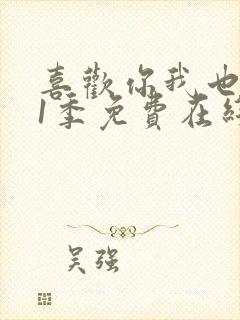 喜歡你我也
1季免費在
吴强